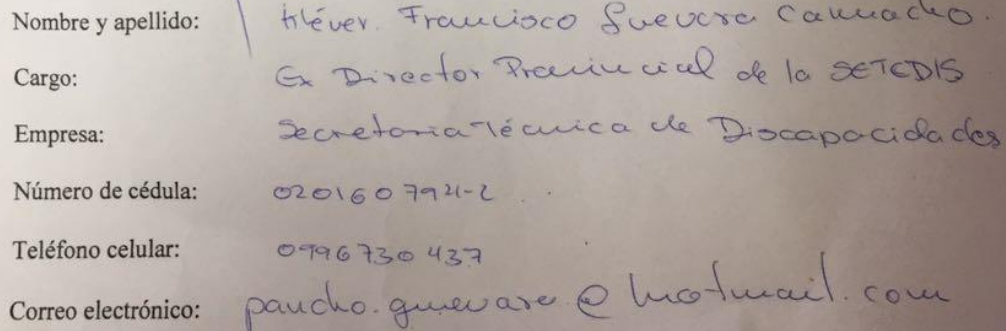 Nombre y apellido: Kléver. Francisco Guevara Camacho.
Cargo: Ex Director Provincial de la SETEDIS
Empresa: Secretaria Técnica de Discapacidades
Número de cédula:
Teléfono celular: 0996730437
Correo electrónico: pancho.guevara@hotmail.com